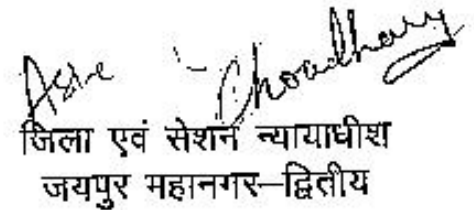 Choudhary
जिला एवं सेशन न्यायाधीश
जयपुर महानगर–द्वितीय